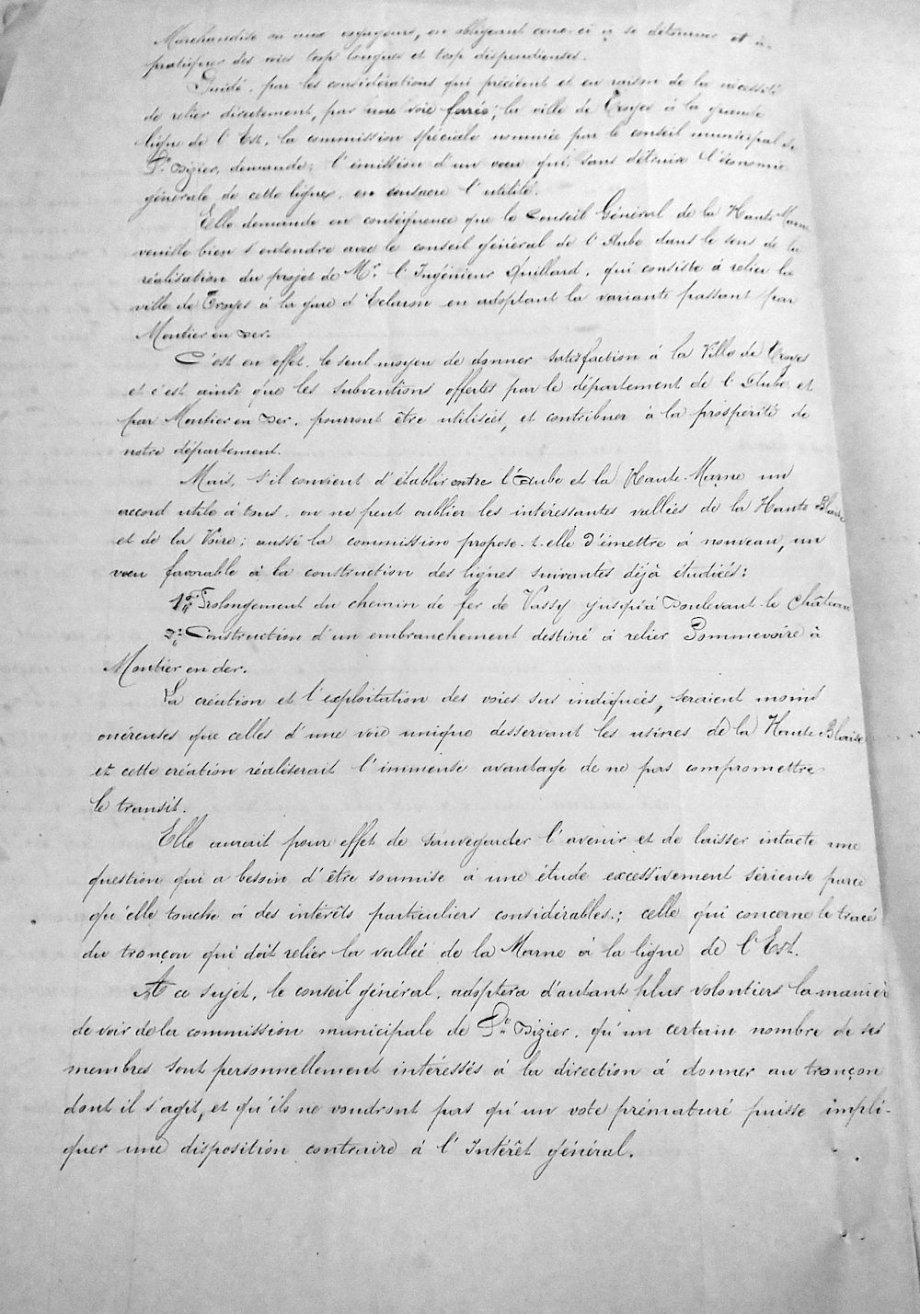 Marchandise ou aux voyageurs, en obligeant ceux-ci à se détourner et à
pratiquer des voies trop longues et trop dispendieuses.
Guidé, par les considérations qui précèdent et en raison de la nécessité
de relier directement, par une voie farée; la ville de Troyes à la grande
ligne de l'Est, la commission spéciale nommée par le conseil municipal de
St Dizier, demande; l'émission d'un vœu qui, sans détruire l'économie
générale de cette ligne, en consacre l'utilité.
Elle demande en conséquence que le Conseil Général de la Haute Marne
veuille bien s'entendre avec le conseil général de l'Aube dans le sens de la
réalisation du projet de Mr. l'Ingénieur Quillard, qui consiste à relier la
ville de Troyes à la gare d'Eclaron en adoptant la variante passant par
Montier en Der.
C'est en effet, le seul moyen de donner satisfaction à la Ville de Troyes
et c'est ainsi que les subventions offertes par le département de l'Aube et
par Montier en Der, pourront être utilisées, et contribuer à la prospérité de
notre département.
Mais, s'il convient d'établir entre l'Aube et la Haute-Marne un
accord utile à tous, on ne peut oublier les intéressantes vallées de la Haute Blaise
et de la Voire; aussi la commission propose-t-elle d'émettre à nouveau, un
vœu favorable à la construction des lignes suivantes déjà étudiées:
1° Prolongement du chemin de fer de Vassy jusqu'à Doulevant-le Château
2° Construction d'un embranchement destiné à relier Sommevoire à
Montier en der.
La création et l'exploitation des voies sus indiquées, seraient moins
onéreuses que celles d'une voie unique desservant les usines de la Haute Blaise
et cette création réaliserait l'immense avantage de ne pas compromettre
le transit.
Elle aurait pour effet de sauvegarder l'avenir et de laisser intacte une
question qui a besoin d'être soumise à une étude excessivement sérieuse parce
qu'elle touche à des intérêts particuliers considérables; celle qui concerne le tracé
du tronçon qui doit relier la vallée de la Marne à la ligne de l'Est.
A ce sujet, le conseil général, adoptera d'autant plus volontiers la manière
de voir de la commission municipale de St Dizier, qu'un certain nombre de ses
membres sont personnellement intéressés à la direction à donner au tronçon
dont il s'agit, et qu'ils ne voudront pas qu'un vote prématuré puisse impli-
quer une disposition contraire à l'Intérêt général.